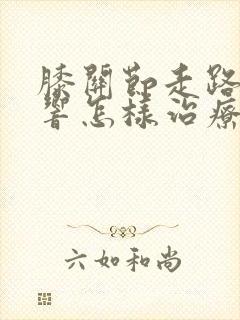 膝關節走路
響怎樣治療
六如和尚